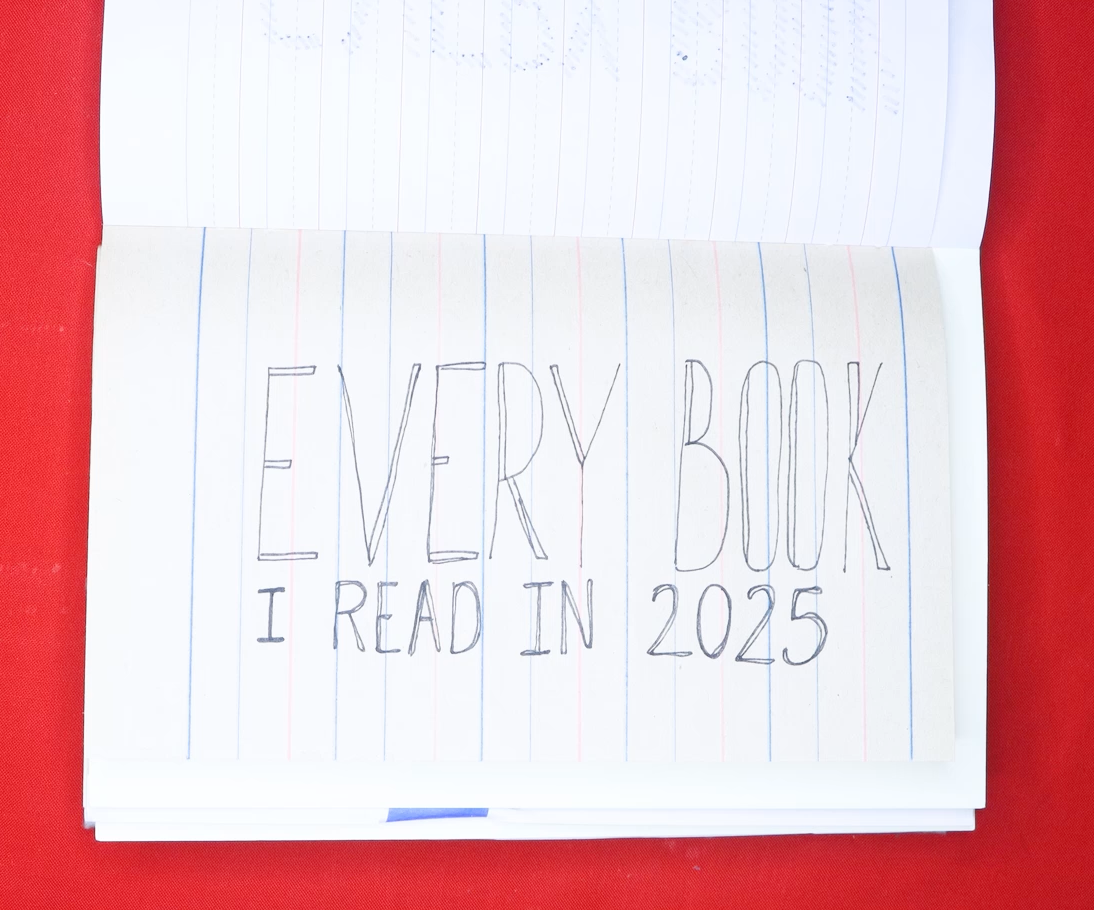 EVERY BOOK
I READ IN 2025